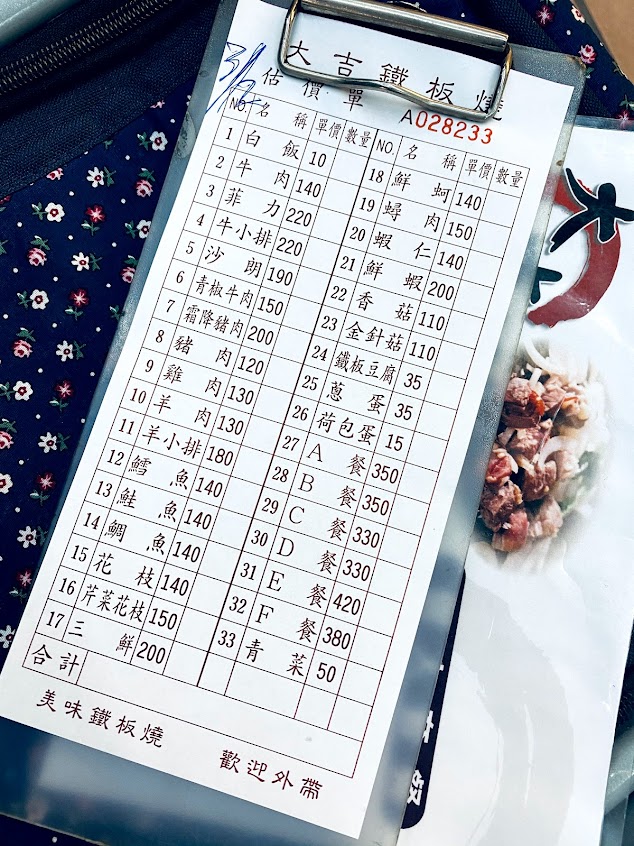 大吉鐵板燒
估價單
A028233
NO. 名稱 單價 數量
1 白飯 10
2 牛肉 140
3 菲力 220
4 牛小排 220
5 沙朗 190
6 青椒牛肉 150
7 霜降豬肉 200
8 豬肉 120
9 雞肉 130
10 羊肉 130
11 羊小排 180
12 鱈魚 140
13 鮭魚 140
14 鯛魚 140
15 花枝 140
16 芹菜花枝 150
17 三鮮 200
合計
NO. 名稱 單價 數量
18 鮮蚵 140
19 蟳肉 150
20 蝦仁 140
21 鮮蝦 200
22 香菇 110
23 金針菇 110
24 鐵板豆腐 35
25 蔥蛋 35
26 荷包蛋 15
27 A餐 350
28 B餐 350
29 C餐 330
30 D餐 330
31 E餐 420
32 F餐 380
33 青菜 50
美味鐵板燒 歡迎外帶
大